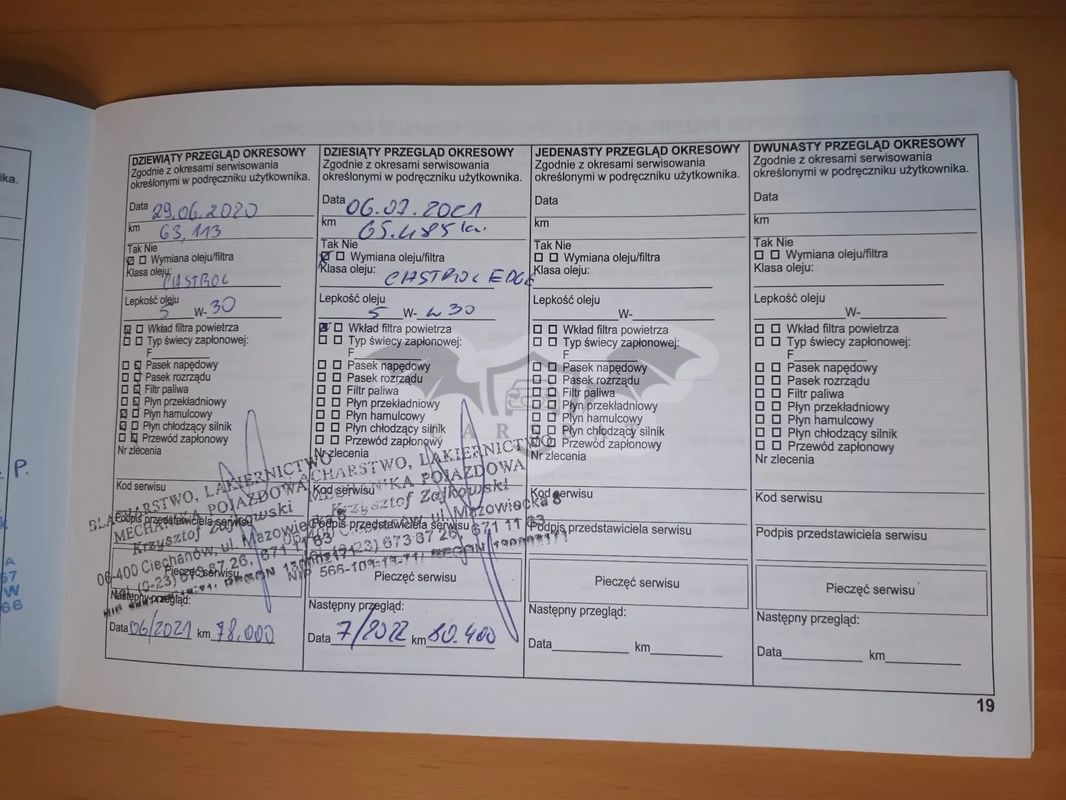 DZIEWIĄTY PRZEGLĄD OKRESOWY
Zgodnie z okresami serwisowania
określonymi w podręczniku użytkownika.
Data 29.06.2020
km 63,113
Tak Nie
Wymiana oleju/filtra
Klasa oleju: CASTROL
Lepkość oleju
5 W- 30
Wkład filtra powietrza
Typ świecy zapłonowej:
F
Pasek napędowy
Pasek rozrządu
Filtr paliwa
Płyn przekładniowy
Płyn hamulcowy
Płyn chłodzący silnik
Przewód zapłonowy
Nr zlecenia
Kod serwisu
Podpis przedstawiciela serwisu
Pieczęć serwisu
BLACHARSTWO, LAKIERNICTWO
MECHANIKA POJAZDOWA
Krzysztof Zajkowski
06-400 Ciechanów, ul. Mazowiecka 8
Następny przegląd:
Data 06/2021 km 78.000
DZIESIĄTY PRZEGLĄD OKRESOWY
Zgodnie z okresami serwisowania
określonymi w podręczniku użytkownika.
Data 06.07.2021
km 65.485 km.
Tak Nie
Wymiana oleju/filtra
Klasa oleju: CASTROL EDGE
Lepkość oleju
5 W- W 30
Wkład filtra powietrza
Typ świecy zapłonowej:
F
Pasek napędowy
Pasek rozrządu
Filtr paliwa
Płyn przekładniowy
Płyn hamulcowy
Płyn chłodzący silnik
Przewód zapłonowy
Nr zlecenia
Kod serwisu
Podpis przedstawiciela serwisu
Pieczęć serwisu
LAKIERNICTWO
MECHANIKA POJAZDOWA
Krzysztof Zajkowski
Ciechanów, ul. Mazowiecka 8
673 87 26, 671 11 63
NIP 566-109-13-71
Następny przegląd:
Data 7/2022 km 80.400
JEDENASTY PRZEGLĄD OKRESOWY
Zgodnie z okresami serwisowania
określonymi w podręczniku użytkownika.
Data
km
Tak Nie
Wymiana oleju/filtra
Klasa oleju:
Lepkość oleju
W-
Wkład filtra powietrza
Typ świecy zapłonowej:
F
Pasek napędowy
Pasek rozrządu
Filtr paliwa
Płyn przekładniowy
Płyn hamulcowy
Płyn chłodzący silnik
Przewód zapłonowy
Nr zlecenia
Kod serwisu
Podpis przedstawiciela serwisu
Pieczęć serwisu
Następny przegląd:
Data km
DWUNASTY PRZEGLĄD OKRESOWY
Zgodnie z okresami serwisowania
określonymi w podręczniku użytkownika.
Data
km
Tak Nie
Wymiana oleju/filtra
Klasa oleju:
Lepkość oleju
W-
Wkład filtra powietrza
Typ świecy zapłonowej:
F
Pasek napędowy
Pasek rozrządu
Filtr paliwa
Płyn przekładniowy
Płyn hamulcowy
Płyn chłodzący silnik
Przewód zapłonowy
Nr zlecenia
Kod serwisu
Podpis przedstawiciela serwisu
Pieczęć serwisu
Następny przegląd:
Data km
19